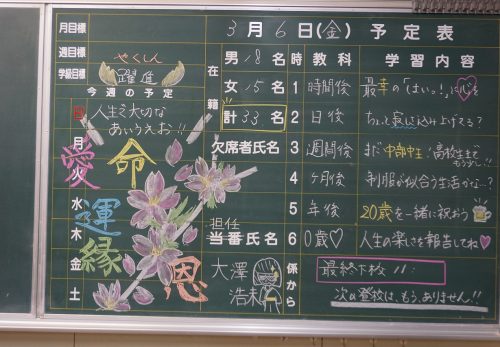 3月6日(金) 予定表
月目標
週目標
学級目標 やくしん 躍進
今週の予定
日 人生で大切な
あいうえお!!
月
火
水
木
金
土
愛
命
運
縁
恩
在籍
男 18名
女 15名
計 33名
欠席者氏名
担任
当番氏名
大澤
浩未
時 教科 学習内容
1 時間後 最幸の「はいっ!」に心を
2 日後
3 週間後 まだ中部中生!高校生まで
もう少し!!
4 ヶ月後 制服が似合う生活かな…?
5 年後 20歳を一緒に祝おう
6 0歳♡ 人生の楽しさを報告してね♡
係から
最終下校 11:
次の登校は、もう、ありません!!